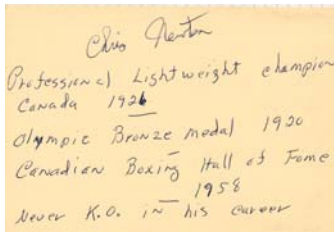 Chris Newton
Professional Lightweight champion
Canada 1926
Olympic Bronze medal 1920
Canadian Boxing Hall of Fame
1958
Never K.O. in his career